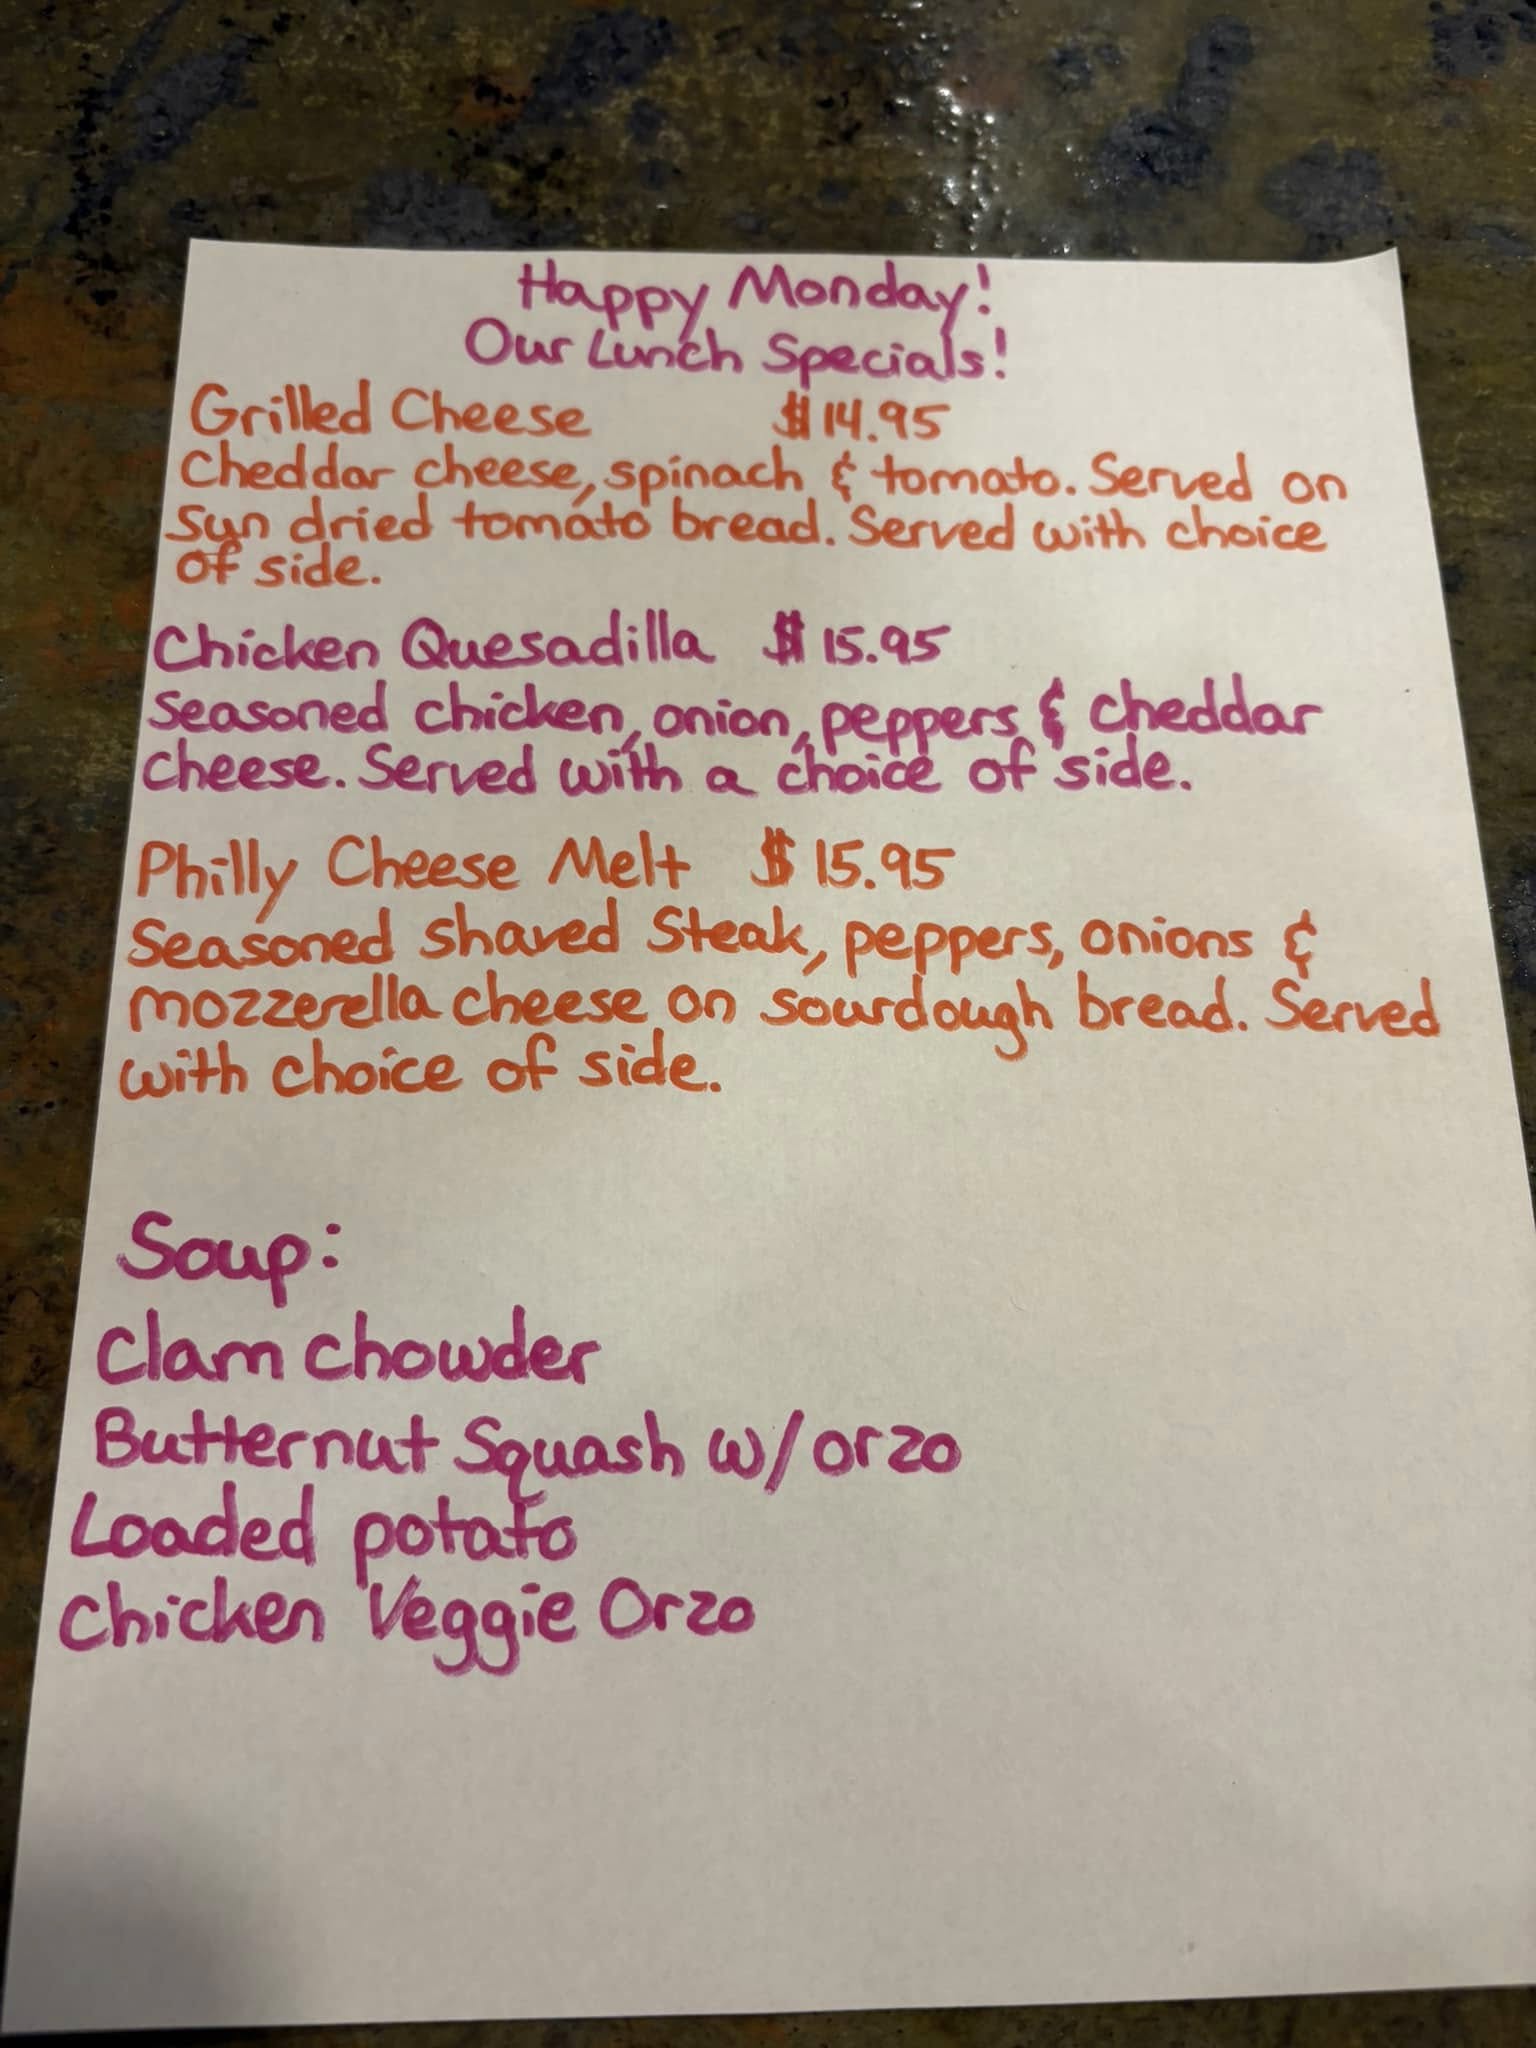 Happy Monday!
Our Lunch Specials!
Grilled Cheese $14.95
Cheddar cheese, spinach & tomato. Served on
Sun dried tomato bread. Served with choice
of side.
Chicken Quesadilla $15.95
Seasoned chicken, onion, peppers & cheddar
cheese. Served with a choice of side.
Philly Cheese Melt $15.95
Seasoned shaved Steak, peppers, onions &
mozzerella cheese on sourdough bread. Served
with choice of side.
Soup:
Clam Chowder
Butternut Squash w/ orzo
Loaded potato
Chicken Veggie Orzo